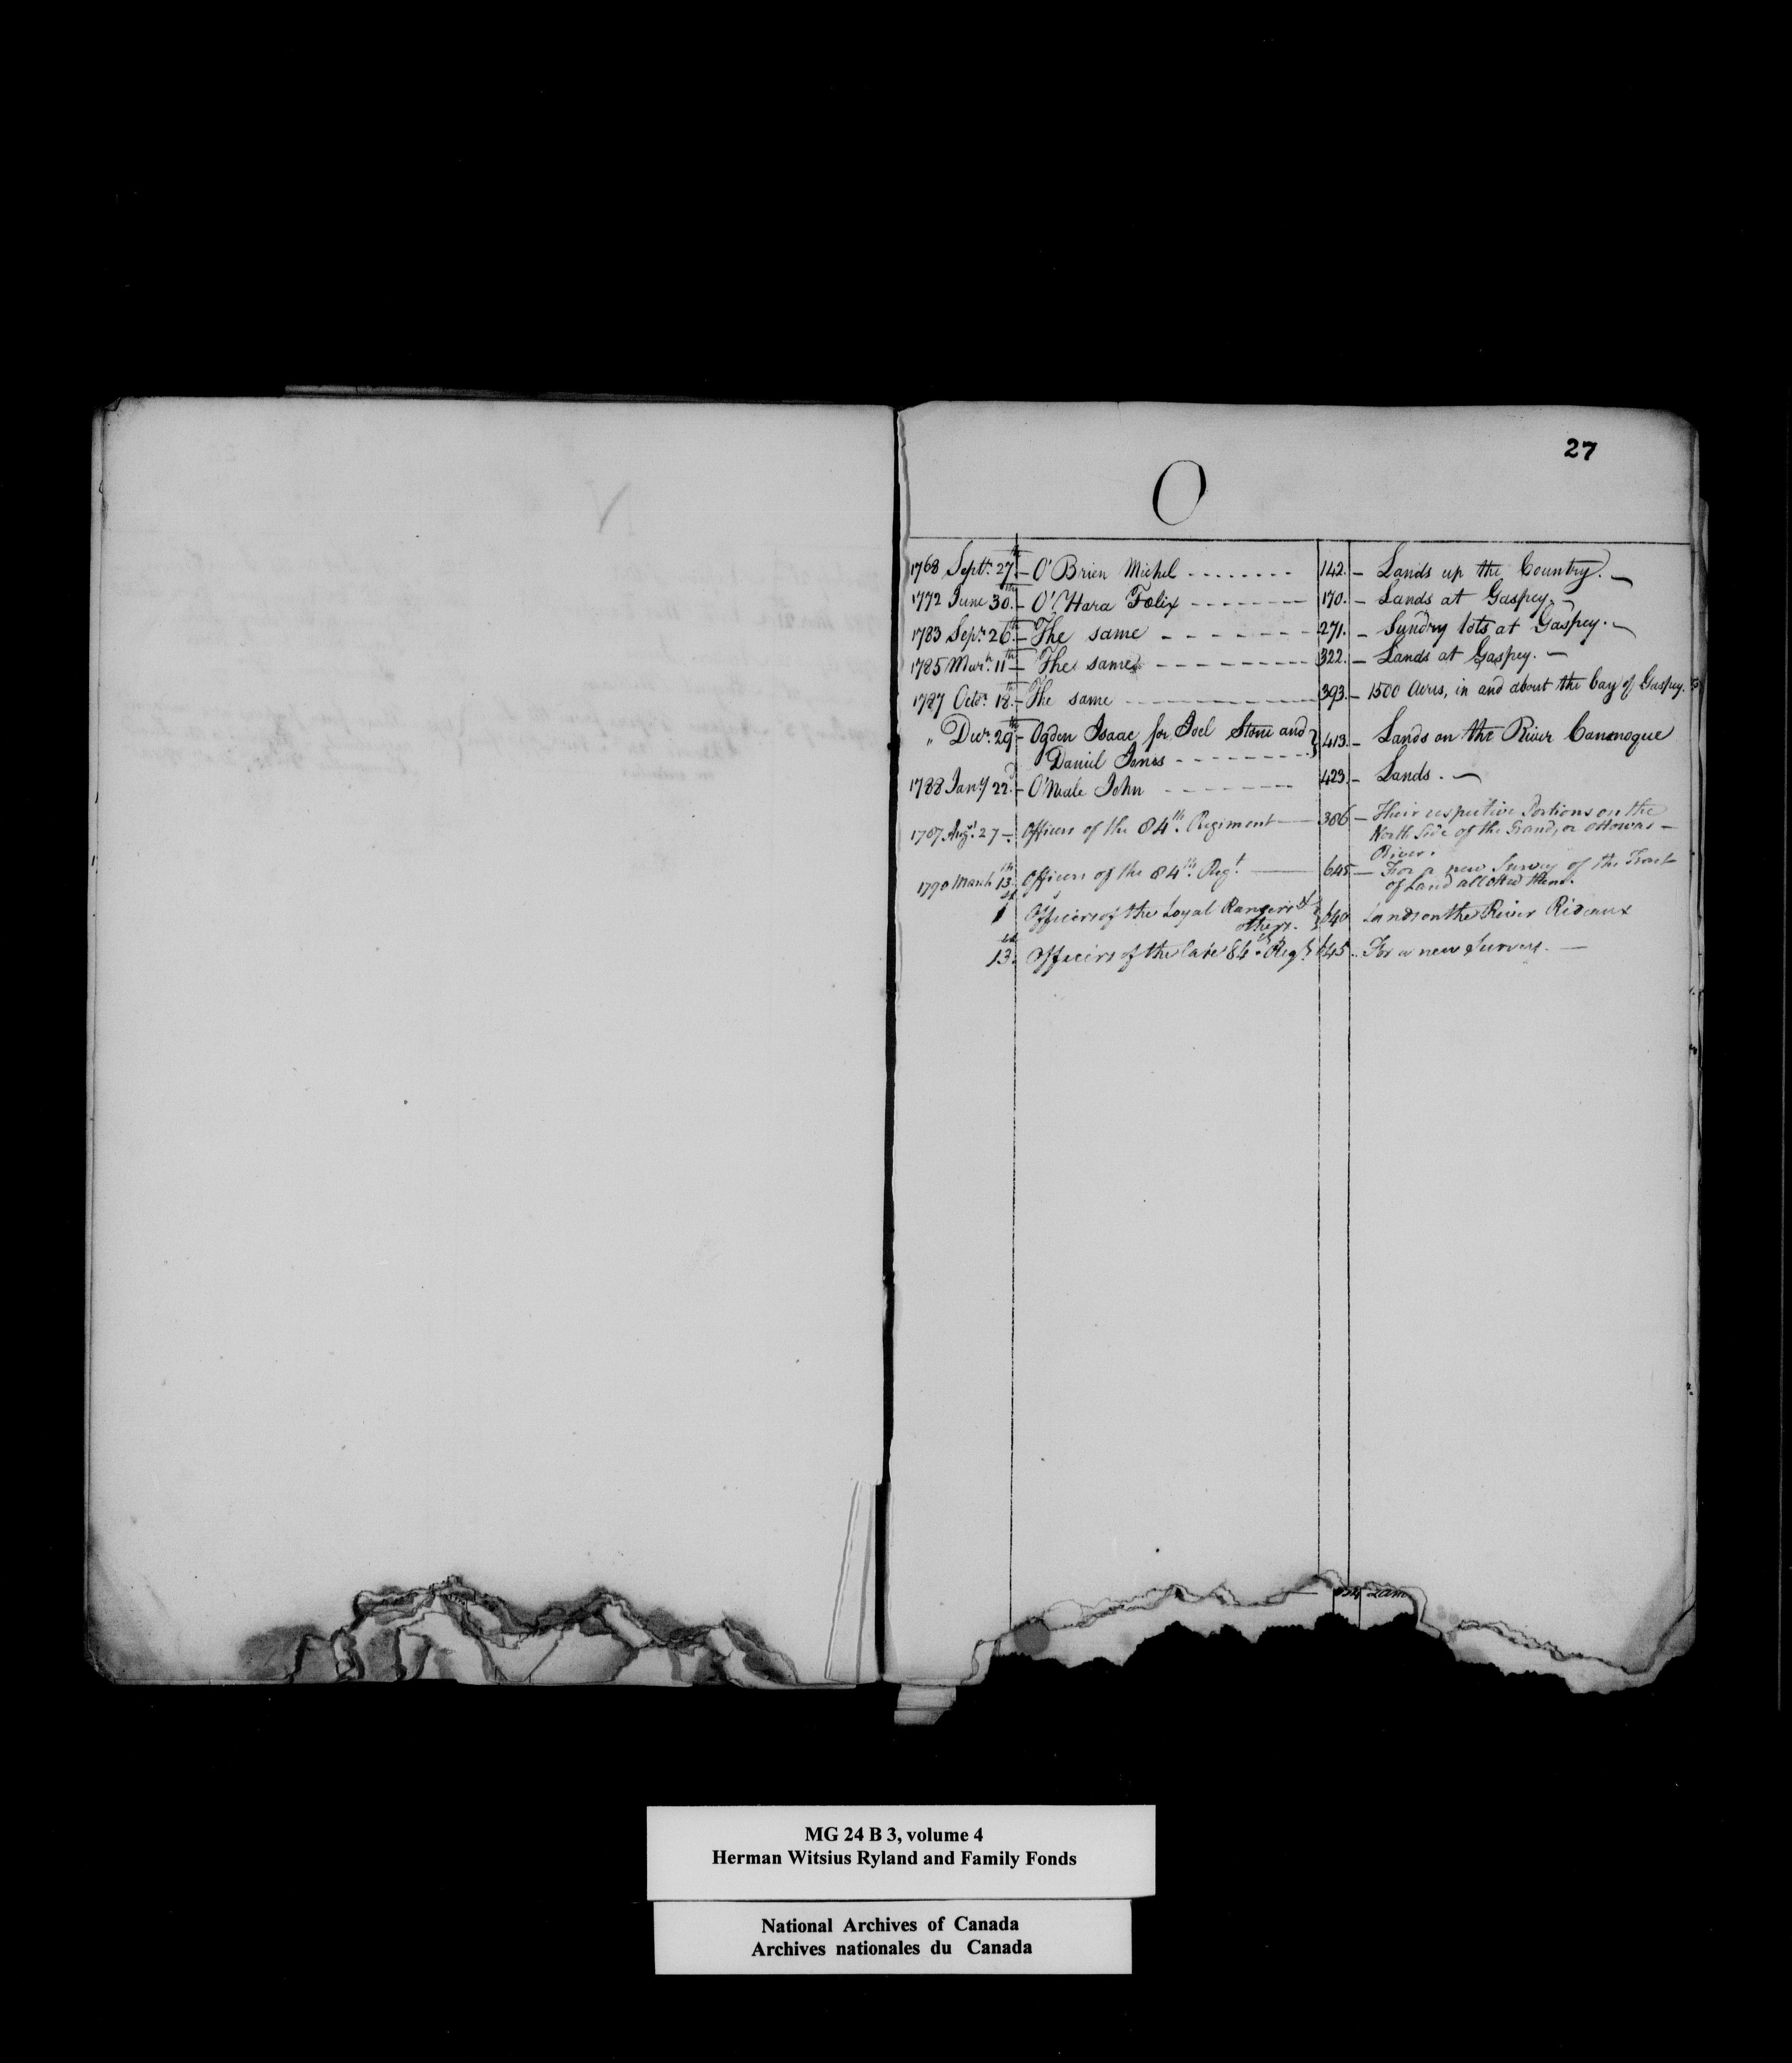 27
O
1768 Septr. 27th. - O'Brien Michel - - - - - - - - 142. - Lands up the Country. -
1772 June 30th. - O'Hara Felix - - - - - - - - 170. - Lands at Gaspey. -
1783 Sepr. 26th. - The same - - - - - - - 271. - Sundry lots at Gaspey. -
1785 Marh. 11th - The same - - - - - - - - 322. - Lands at Gaspey. -
1787 Octor. 18th. - The same - - - - - - - - 393. - 1500 Acres, in and about the bay of Gaspey.
" Decr. 29th - Ogden Isaac for Joel Stone and } 413. - Lands on the River Cananoque
Daniel Jones - - - - - - - -
1788 Jany 22d. - O'Neale John - - - - - - - 423. - Lands. -
1787. Augst. 27 -. Officers of the 84th. Regiment — 386 - Their respective Portions on the
North Side of the Grand, or Ottowas -
River.
1790 March 13th. Officers of the 84th. Regt. — 645 - For a new Survey of the Tract
of Land allotted them.
1st Officers of the Loyal Rangers & } 640 Lands on the River Rideaux
others.
13th. Officers of the late 84th. Regt. 645.. For a new Survey. —
MG 24 B 3, volume 4
Herman Witsius Ryland and Family Fonds
National Archives of Canada
Archives nationales du Canada